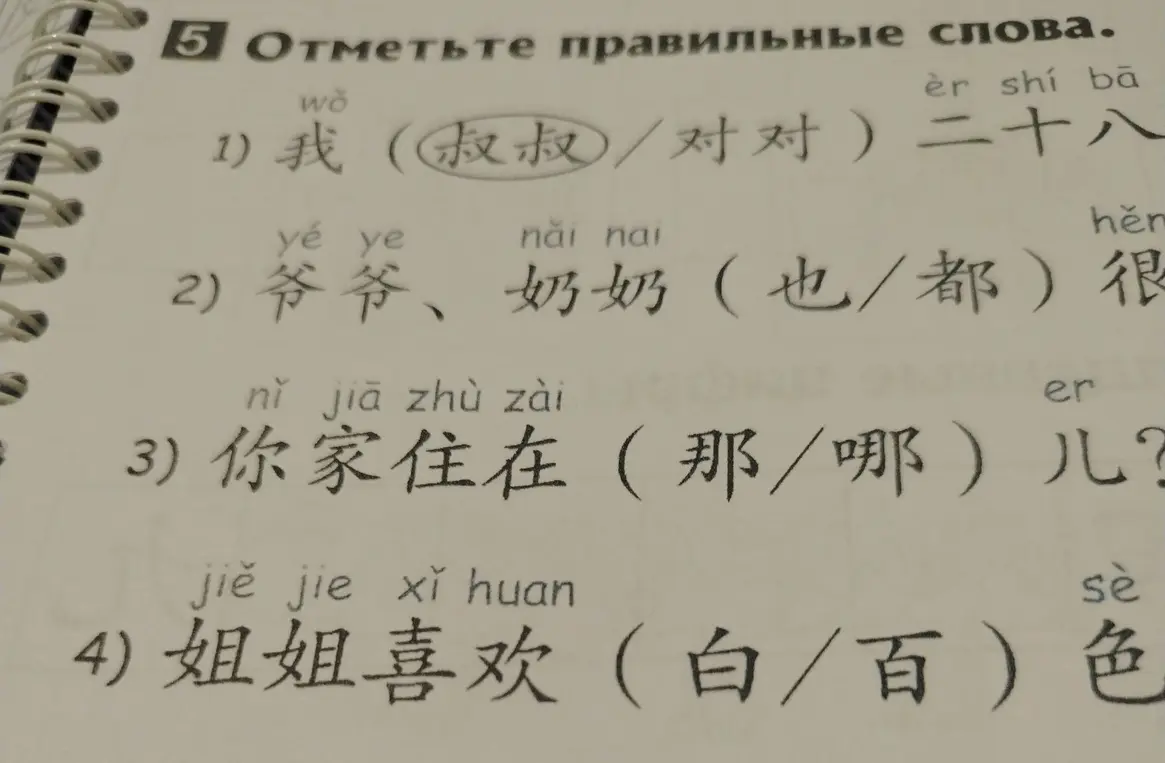 5 Отметьте правильные слова.
wǒ èr shí bā
1) 我 (叔叔/对对) 二十八
yé ye nǎi nai hěn
2) 爷爷、奶奶 (也/都) 很
nǐ jiā zhù zài er
3) 你家住在 (那/哪) 儿?
jiě jie xǐ huan sè
4) 姐姐喜欢 (白/百) 色